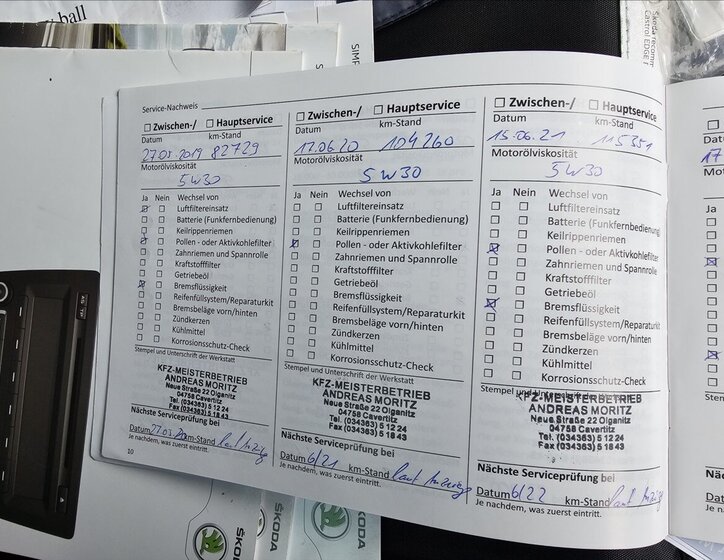 y ball
SIMP
SIM
Skoda recomm
Castrol EDGE P
Service-Nachweis
Zwischen-/ Hauptservice
Datum km-Stand
27.03.2019 82729
Motorölviskosität
5W30
Ja Nein Wechsel von
Luftfiltereinsatz
Batterie (Funkfernbedienung)
Keilrippenriemen
Pollen - oder Aktivkohlefilter
Zahnriemen und Spannrolle
Kraftstofffilter
Getriebeöl
Bremsflüssigkeit
Reifenfüllsystem/Reparaturkit
Bremsbeläge vorn/hinten
Zündkerzen
Kühlmittel
Korrosionsschutz-Check
Stempel und Unterschrift der Werkstatt
KFZ-MEISTERBETRIEB
ANDREAS MORITZ
Neue Straße 22 Olganitz
04758 Cavertitz
Tel. (034363) 5 12 24
Fax (034363) 5 18 43
Nächste Serviceprüfung bei
Datum 27.03.20 km-Stand laut Anzeige
Je nachdem, was zuerst eintritt.
10
Zwischen-/ Hauptservice
Datum km-Stand
17.06.20 104260
Motorölviskosität
5W30
Ja Nein Wechsel von
Luftfiltereinsatz
Batterie (Funkfernbedienung)
Keilrippenriemen
Pollen - oder Aktivkohlefilter
Zahnriemen und Spannrolle
Kraftstofffilter
Getriebeöl
Bremsflüssigkeit
Reifenfüllsystem/Reparaturkit
Bremsbeläge vorn/hinten
Zündkerzen
Kühlmittel
Korrosionsschutz-Check
Stempel und Unterschrift der Werkstatt
KFZ-MEISTERBETRIEB
ANDREAS MORITZ
Neue Straße 22 Olganitz
04758 Cavertitz
Tel. (034363) 5 12 24
Fax (034363) 5 18 43
Nächste Serviceprüfung bei
Datum 6/21 km-Stand laut Anzeige
Je nachdem, was zuerst eintritt.
Zwischen-/ Hauptservice
Datum km-Stand
15.06.21 115351
Motorölviskosität
5W30
Ja Nein Wechsel von
Luftfiltereinsatz
Batterie (Funkfernbedienung
Keilrippenriemen
Pollen - oder Aktivkohlefilter
Zahnriemen und Spannrolle
Kraftstofffilter
Getriebeöl
Bremsflüssigkeit
Reifenfüllsystem/Reparaturkit
Bremsbeläge vorn/hinten
Zündkerzen
Kühlmittel
Korrosionsschutz-Check
Stempel und Unterschrift der Werkstatt
KFZ-MEISTERBETRIEB
ANDREAS MORITZ
Neue Straße 22 Olganitz
04758 Cavertitz
Tel. (034363) 5 12 24
Fax (034363) 5 18 43
Nächste Serviceprüfung bei
Datum 6/22 km-Stand laut Anzeige
Je nachdem, was zuerst eintritt.
Datu
17
Moto
Ja
Stemp
Näc
Datu
Je nac
ŠKODA
ŠKODA